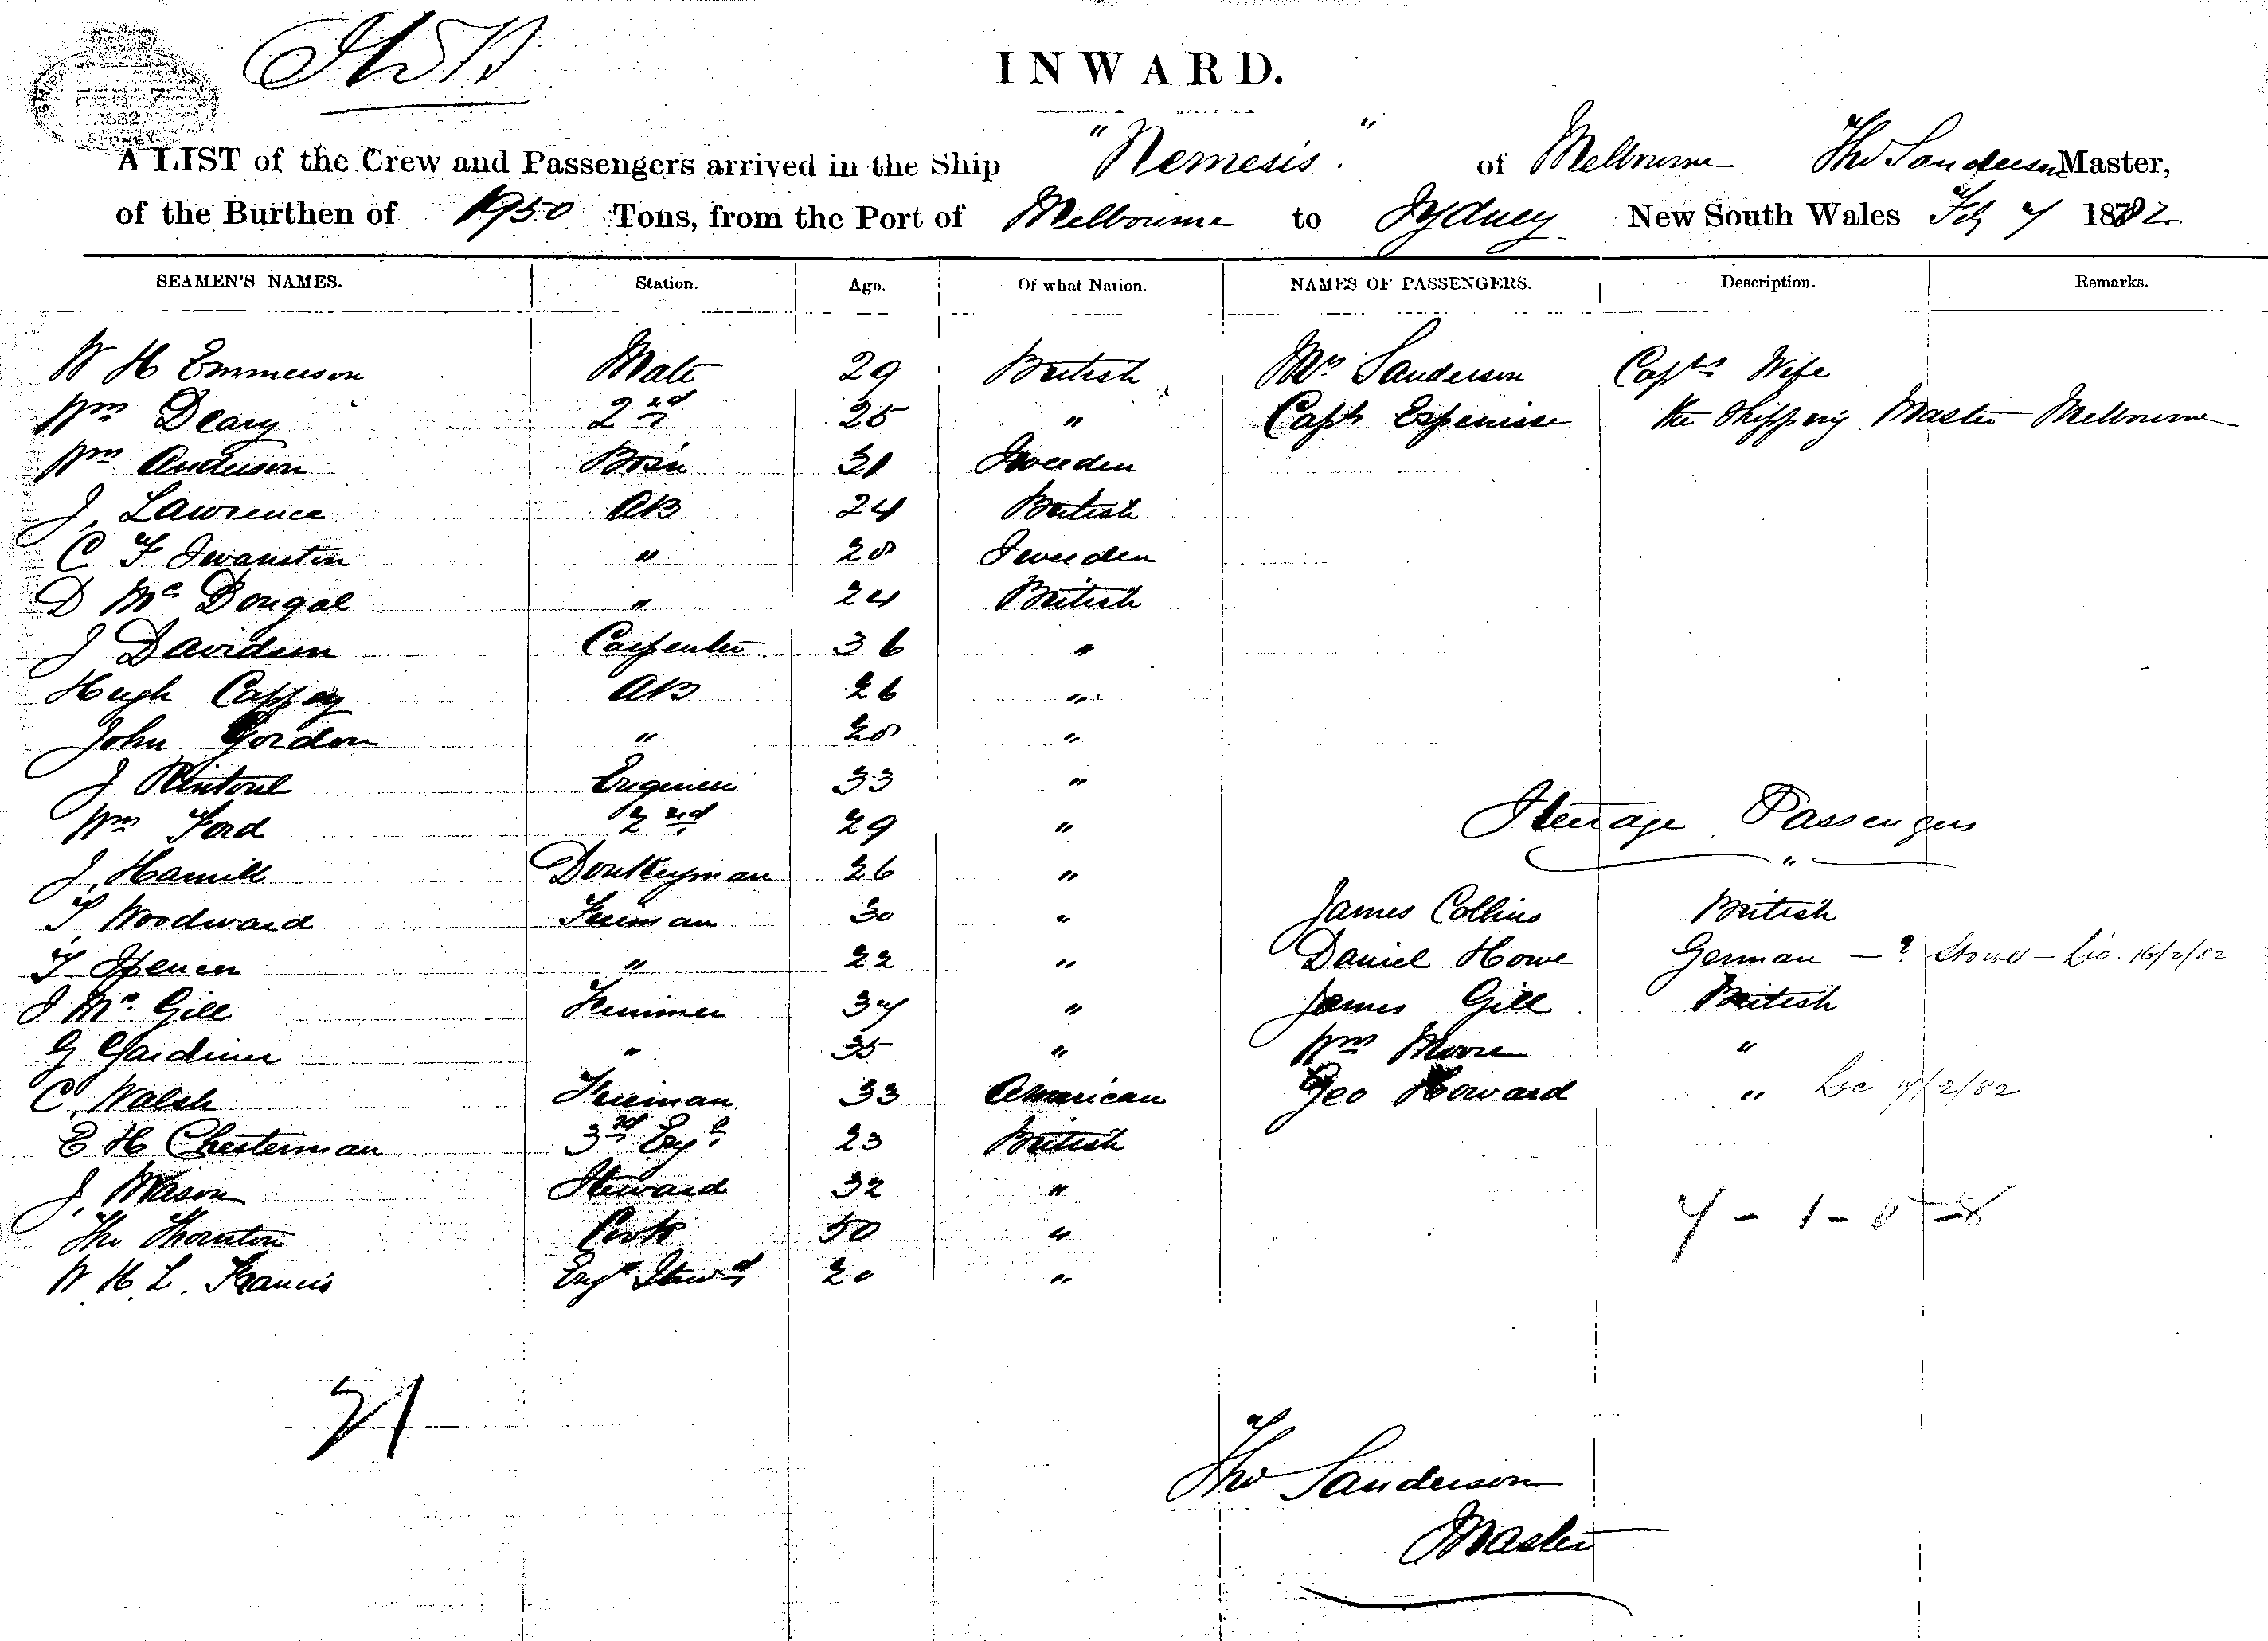 INWARD.
A LIST of the Crew and Passengers arrived in the Ship "Nemesis." of Melbourne Tho Sanderson Master,
of the Burthen of 1950 Tons, from the Port of Melbourne to Sydney New South Wales Feb 7 1882
SEAMEN'S NAMES. Station. Age. Of what Nation. NAMES OF PASSENGERS. Description. Remarks.
W H Emmerson Mate 29 British Mrs Sanderson Capts Wife
Wm Deary 2nd 25 " Capt the Shipping Master Melbourne
Wm Anderson Bosn 31 Sweeden
J. Lawrence AB 24 British
C F Swanston " 28 Sweeden
D Mc Dougal " 24 British
J Davidson Carpenter 36 "
Hugh AB 26 "
John Gordon " 28 "
J Rintoul Engineer 33 "
Wm Ford 2nd 29 " Steerage Passengers
"
J. Hamill Donkeyman 26 "
T. Woodward Fireman 30 " James Collins British
T Spencer " 22 " Daniel Howe German — ? Stowe — Lic. 16/2/82
J Mc Gill Trimmer 37 " James Gill British
G Gardiner " 35 " Wm Moore "
C. Walsh Fireman 33 American Geo Howard " Lic. 17/2/82
E H Chesterman 3rd Engr 23 British
J. Mason Steward 32 "
Tho Thornton Cook 50 "
W. H. L. Francis Engr Stewd 20 "
7 - 1 - 0 - 8
21
Tho Sanderson
Master